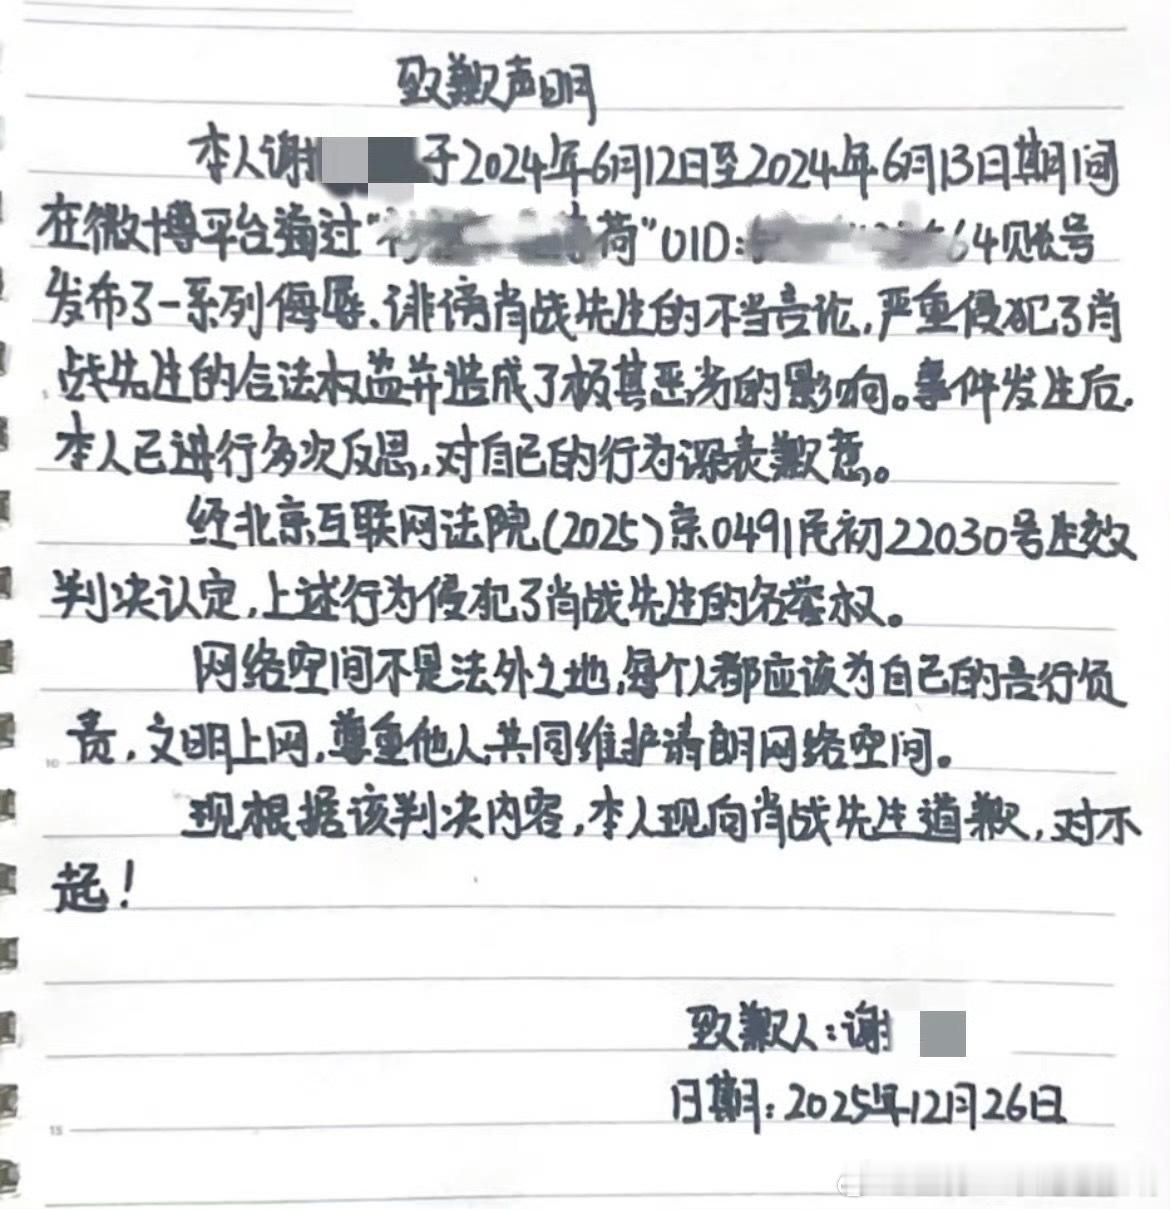 致歉声明
本人谢 于2024年6月12日至2024年6月13日期间
在微博平台通过“ 荷”UID: 64账号
发布了一系列侮辱、诽谤肖战先生的不当言论,严重侵犯了肖
战先生的合法权益并造成了极其恶劣的影响。事件发生后,
本人已进行多次反思,对自己的行为深表歉意。
经北京互联网法院(2025)京0491民初22030号生效
判决认定,上述行为侵犯了肖战先生的名誉权。
网络空间不是法外之地,每个人都应该为自己的言行负
责,文明上网,尊重他人,共同维护清朗网络空间。
10
现根据该判决内容,本人现向肖战先生道歉,对不
起!
致歉人:谢
日期:2025年12月26日
15